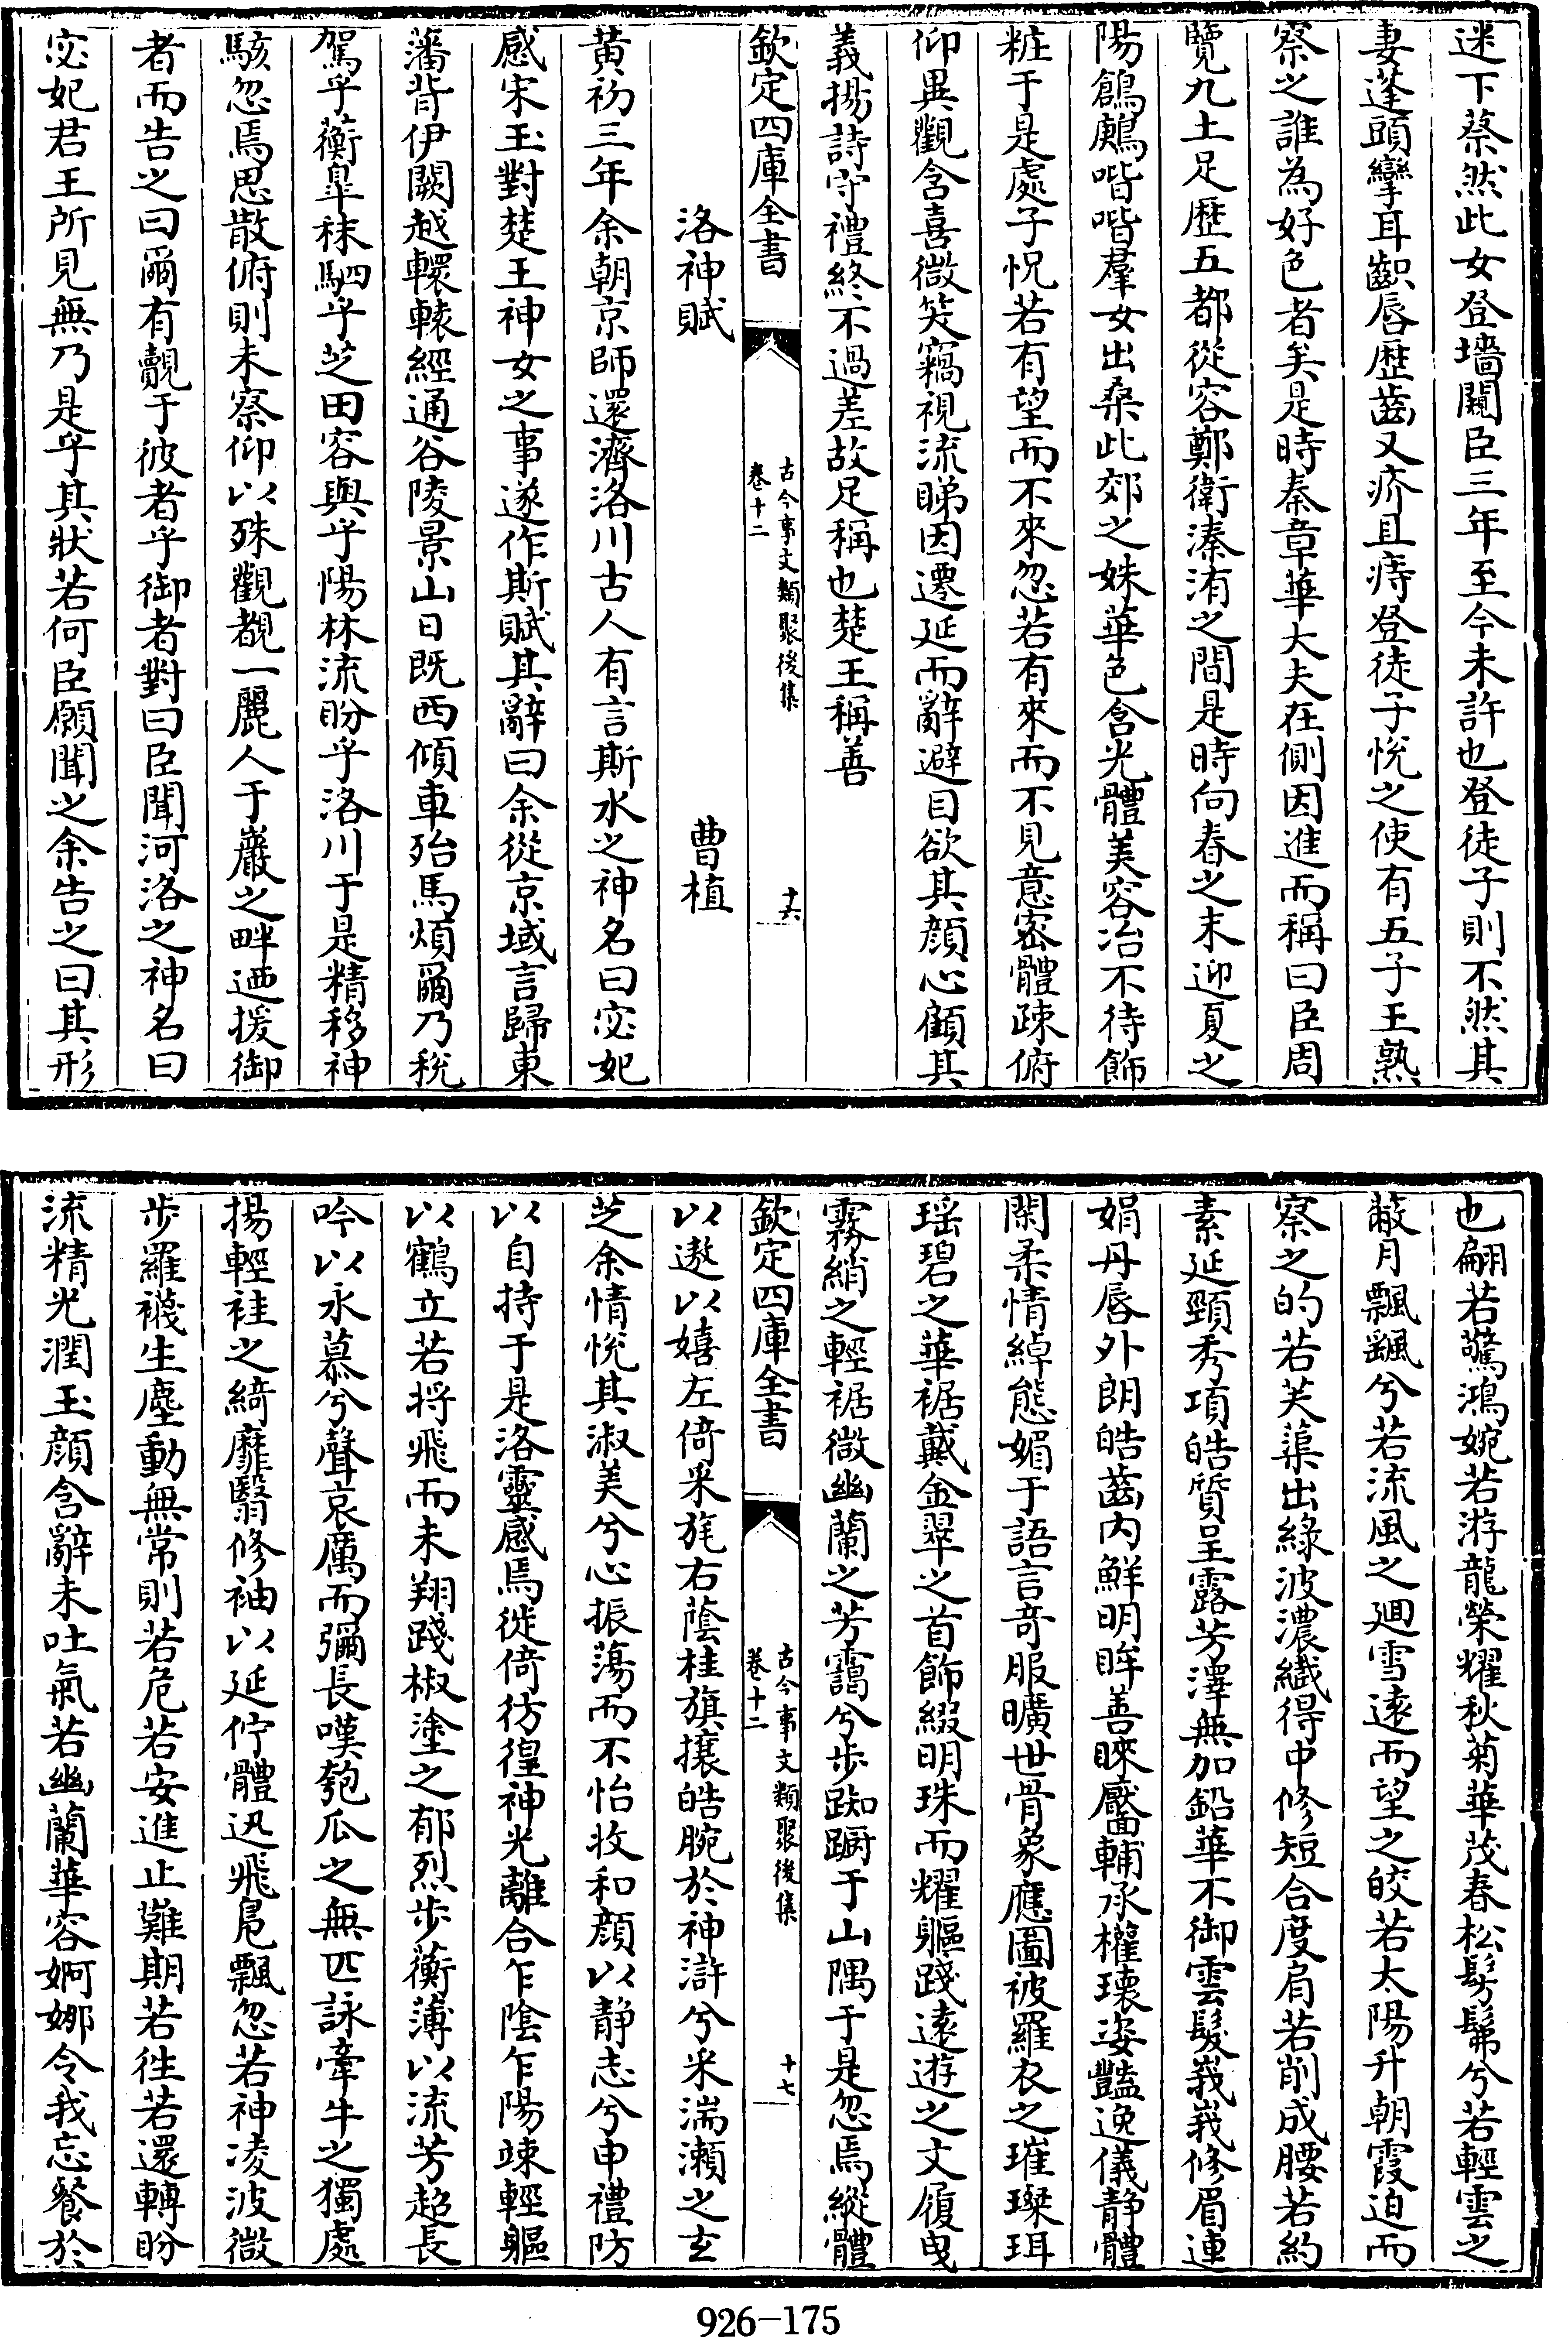 迷下蔡然此女登墻闚臣三年至今未許也登徒子則不然其
妻蓬頭攣耳齞唇歷齒又疥且痔登徒子悅之使有五子王熟
察之誰為好色者矣是時秦章華大夫在側因進而稱曰臣周
覽九土足歷五都從容鄭衛溱洧之間是時向春之末迎夏之
陽鶬鶊喈喈羣女出桑此郊之姝華色含光體美容冶不待飾
粧于是處子怳若有望而不來忽若有來而不見意密體疎俯
仰異觀含喜微笑竊視流睇因遷延而辭避目欲其顔心顧其
義揚詩守禮終不過差故足稱也楚王稱善
欽定四庫全書
古今事文類聚後集
卷十二
十六
洛神賦
曹植
黄初三年余朝京師還濟洛川古人有言斯水之神名曰宓妃
感宋玉對楚王神女之事遂作斯賦其辭曰余從京域言歸東
藩背伊闕越轘轅經通谷陵景山日既西傾車殆馬煩爾乃稅
駕乎蘅臯秣駟乎芝田容與乎陽林流盼乎洛川于是精移神
駭忽焉思散俯則未察仰以殊觀覩一麗人于巖之畔迺援御
者而告之曰爾有覿于彼者乎御者對曰臣聞河洛之神名曰
宓妃君王所見無乃是乎其狀若何臣願聞之余告之曰其形
也翩若驚鴻婉若游龍榮耀秋菊華茂春松髣髴兮若輕雲之
蔽月飄颻兮若流風之廻雪遠而望之皎若太陽升朝霞迫而
察之的若芙蕖出綠波濃纎得中修短合度肩若削成腰若約
素延頸秀項皓質呈露芳澤無加鉛華不御雲髮峩峩修眉連
娟丹唇外朗皓齒内鮮明眸善睞靨輔承權瓌姿豔逸儀静體
閑柔情綽態媚于語言奇服曠世骨象應圖被羅衣之璀璨珥
瑶碧之華裾戴金翠之首飾綴明珠而耀軀踐遠遊之文履曳
霧綃之輕裾微幽蘭之芳靄兮步踟蹰于山隅于是忽焉縱體
欽定四庫全書
古今事文類聚後集
卷十二
十七
以遨以嬉左倚采旄右蔭桂旗攘皓腕於神滸兮采湍瀬之玄
芝余情悅其淑美兮心振蕩而不怡收和顔以静志兮申禮防
以自持于是洛靈感焉徙倚彷徨神光離合乍陰乍陽竦輕軀
以鶴立若将飛而未翔踐椒塗之郁烈步蘅薄以流芳超長
吟以永慕兮聲哀厲而彌長嘆匏瓜之無匹詠牽牛之獨處
揚輕袿之綺靡翳修袖以延佇體迅飛鳬飄忽若神凌波微
步羅襪生塵動無常則若危若安進止難期若徃若還轉盼
流精光潤玉顔含辭未吐氣若幽蘭華容婀娜令我忘餐於
926-175